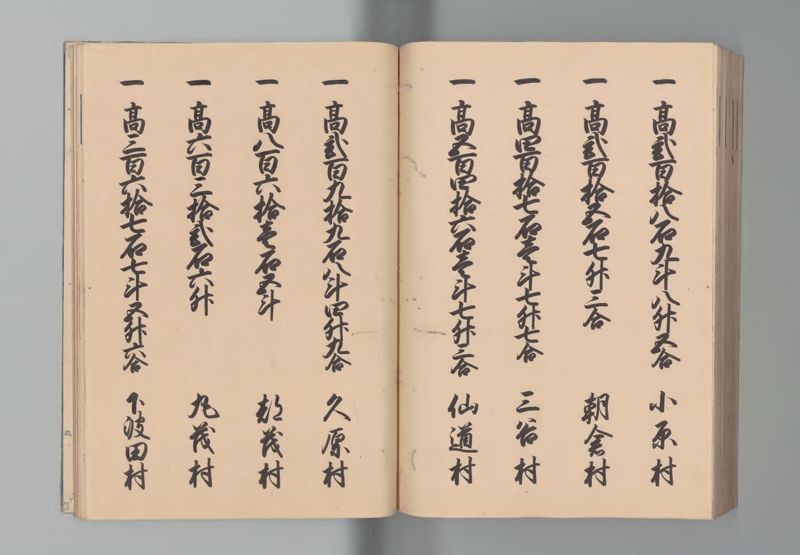 一 高弐百拾八石九斗八升五合 小原村
一 高弐百拾五石七升三合 朝倉村
一 高四百拾七石壱斗七升七合 三谷村
一 高五百四拾六石壱斗七升三合 仙道村
一 高弐百九拾九石八斗四升九合 久原村
一 高八百六拾壱石五斗 都茂村
一 高六百三拾弐石六升 丸茂村
一 高三百六拾七石七斗五升六合 下波田村